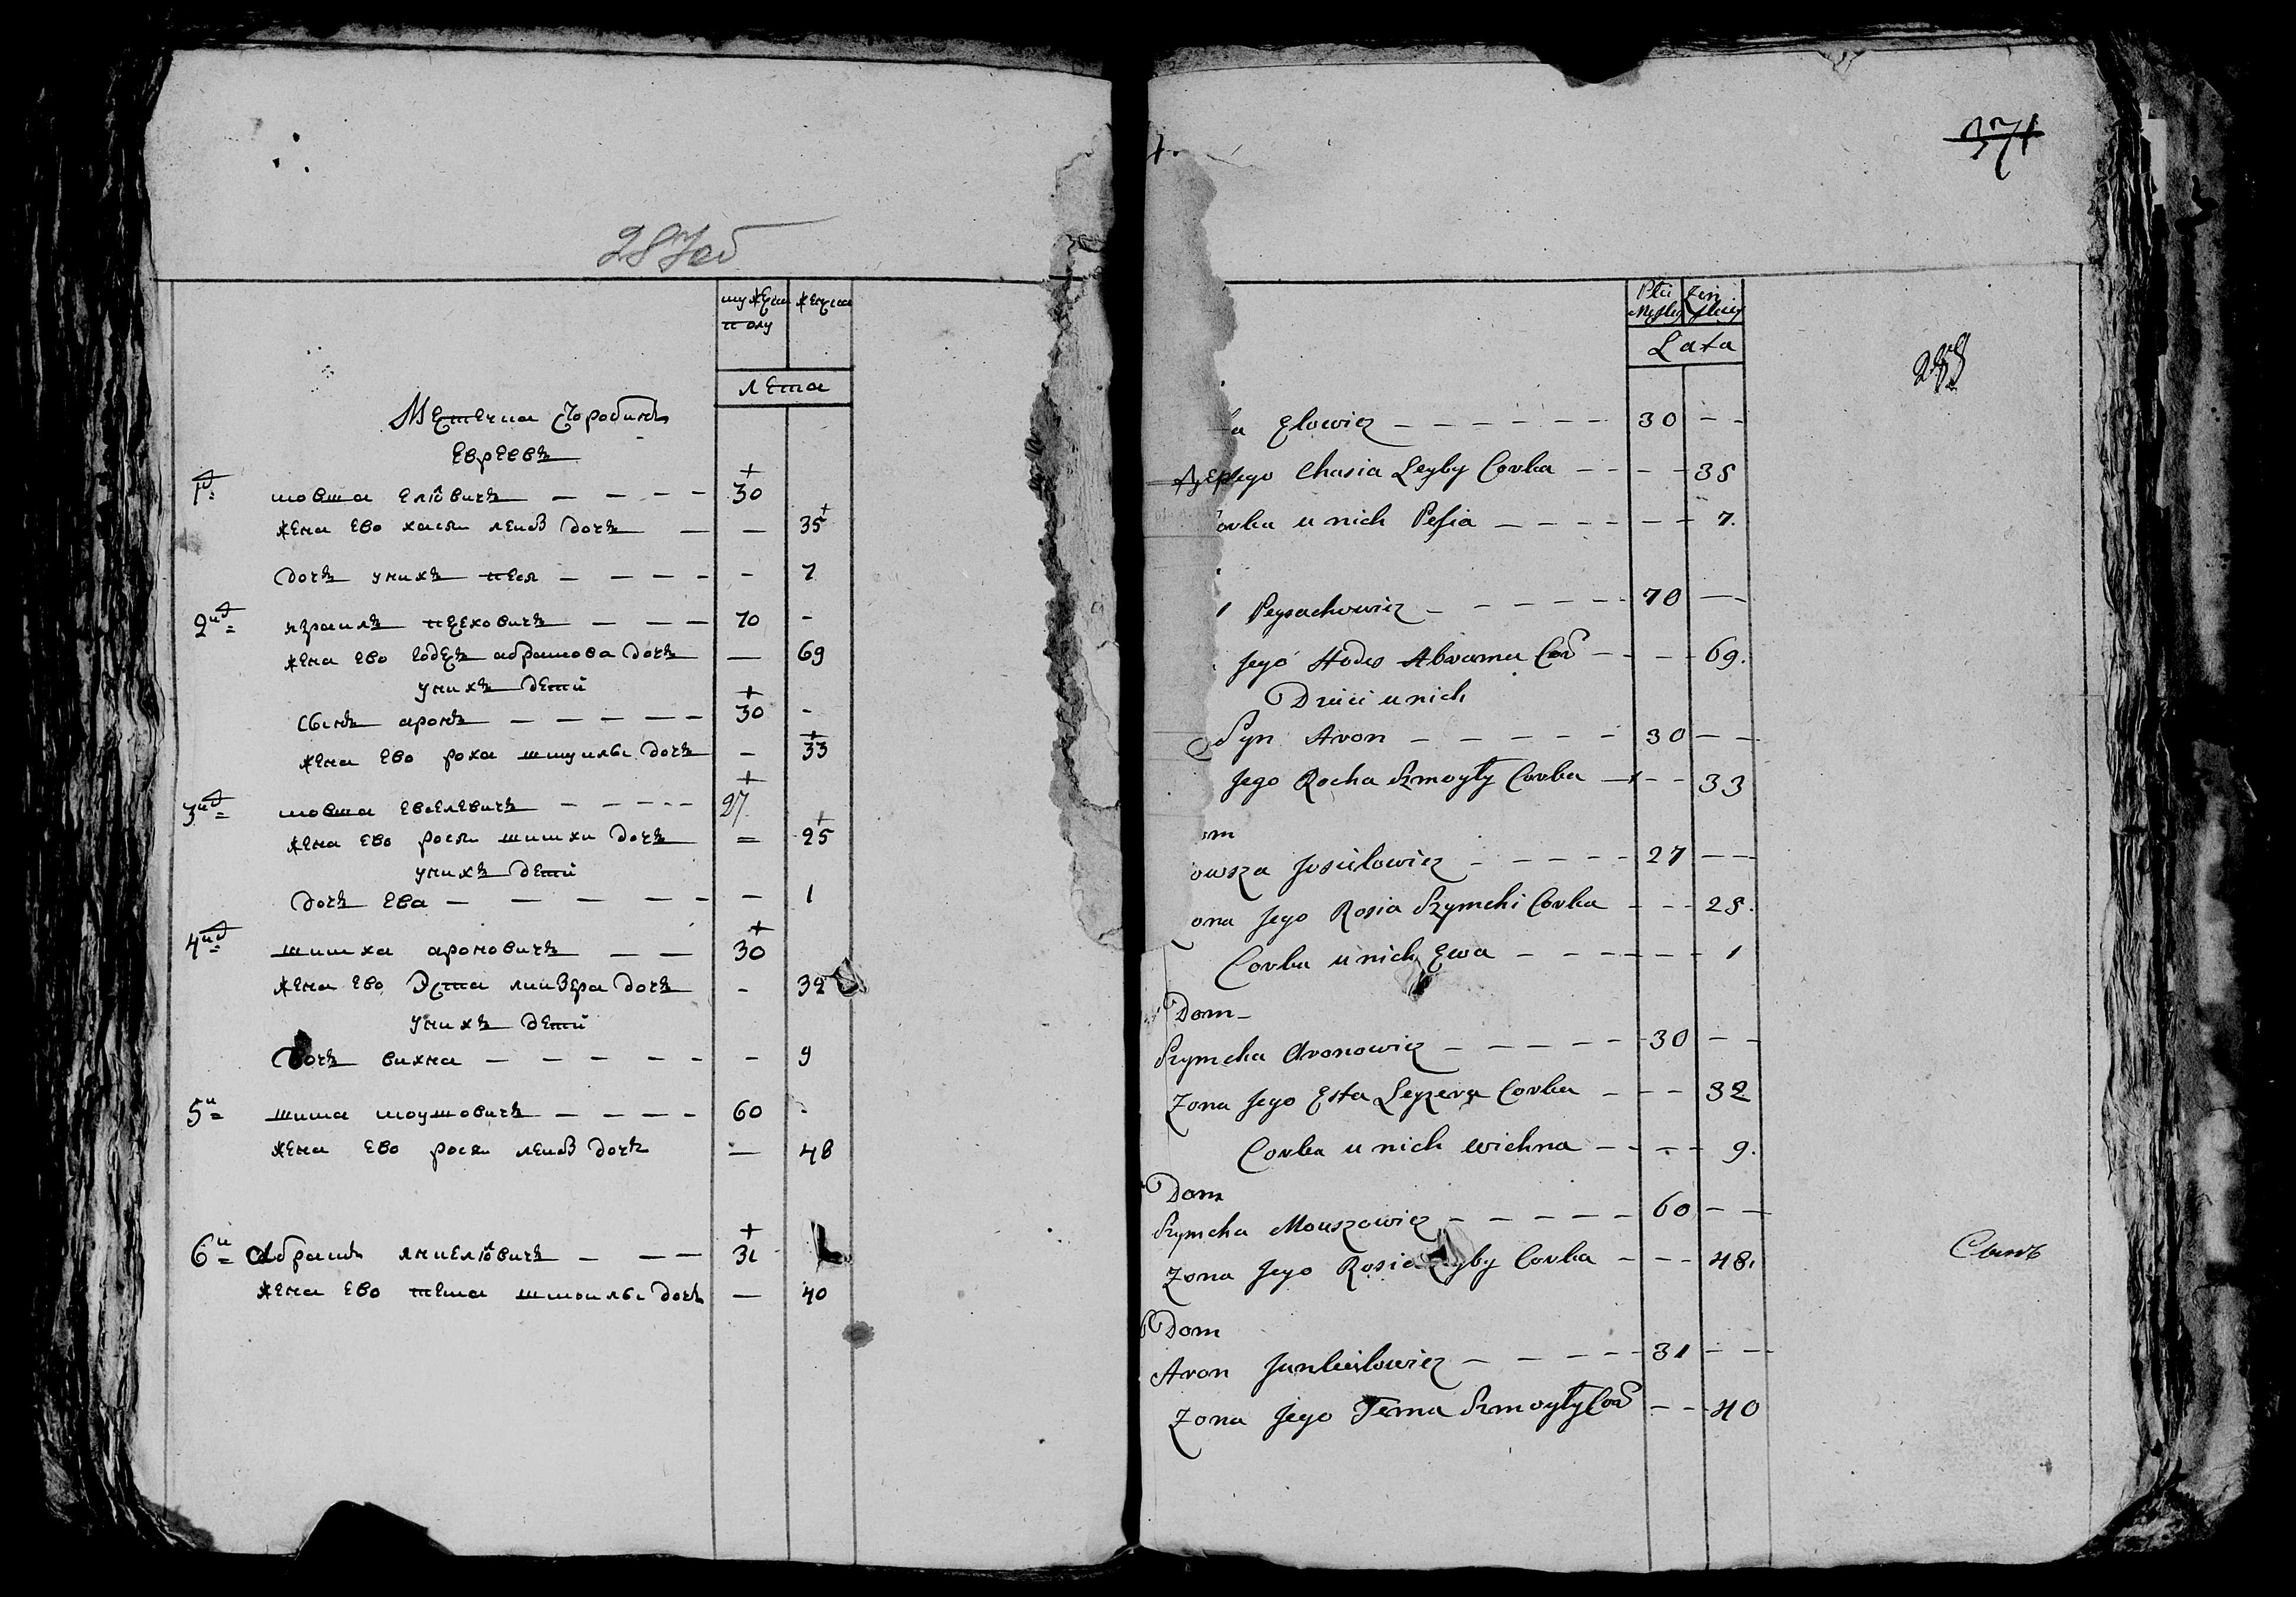 287об
мужска полу женска
лета
Местечка Чоробина
Евреевъ
1й мовша елiовичъ — — — — 30
жена ево хася леиб дочъ — — 35
дочъ унихъ песя — — — — — 7
2й израиль пеиховичъ — — — 70 -
жена ево годесъ абрамова дочъ — 69
унихъ детй
сынъ аронъ — — — — — 30 -
жена ево роха шмуилы дочъ — 33
3й мовша евселевичъ — — — — 27
жена ево рося шимхи дочъ = 25
унихъ детй
дочъ ева — — — — — — 1
4й шимха ароновичъ — — 30
жена ево Эста лиизера дочъ - 32
унихъ детй
дочъ вихна — — — — — - 9
5й шима моушовичъ — — — — 60 -
жена ево рося леиб дочъ — 48
6й абрамъ янкелiовичъ — — — 31
жена ево тема шмоилы дочъ — 40
371
Płci Męskiey Żeńskiey
Lata
288
Elowicz — — — — — — 30 — —
Jego Chasia Leyby Corka — — — 35
u nich Pesia — — — — — — 7.
Peysachowicz — — — — — 70 — —
Jego Hodes Abrama Cor — — — 69.
Dzieci u nich
Syn Aron — — — — — 30 — —
Jego Rocha Szmoyły Corka — — — 33
Josielowicz — — — — — 27 — —
Jego Rosia Szymchi Corka — — — 25.
Corka u nich Ewa — — — — — — 1
Dom
Szymcha Aronowicz — — — — — 30 — —
Zona Jego Esta Leyzera Corka — — — 32
Corka u nich Wichna — — — — 9.
Dom
Szymcha Mouszowicz — — — — — 60 — —
Zona Jego Rosia Leyby Corka — — — 48.
Сынъ
Dom
Aron Jankielowicz — — — — — 31 — —
Zona Jego Tema Szmoyły Cor — — 40